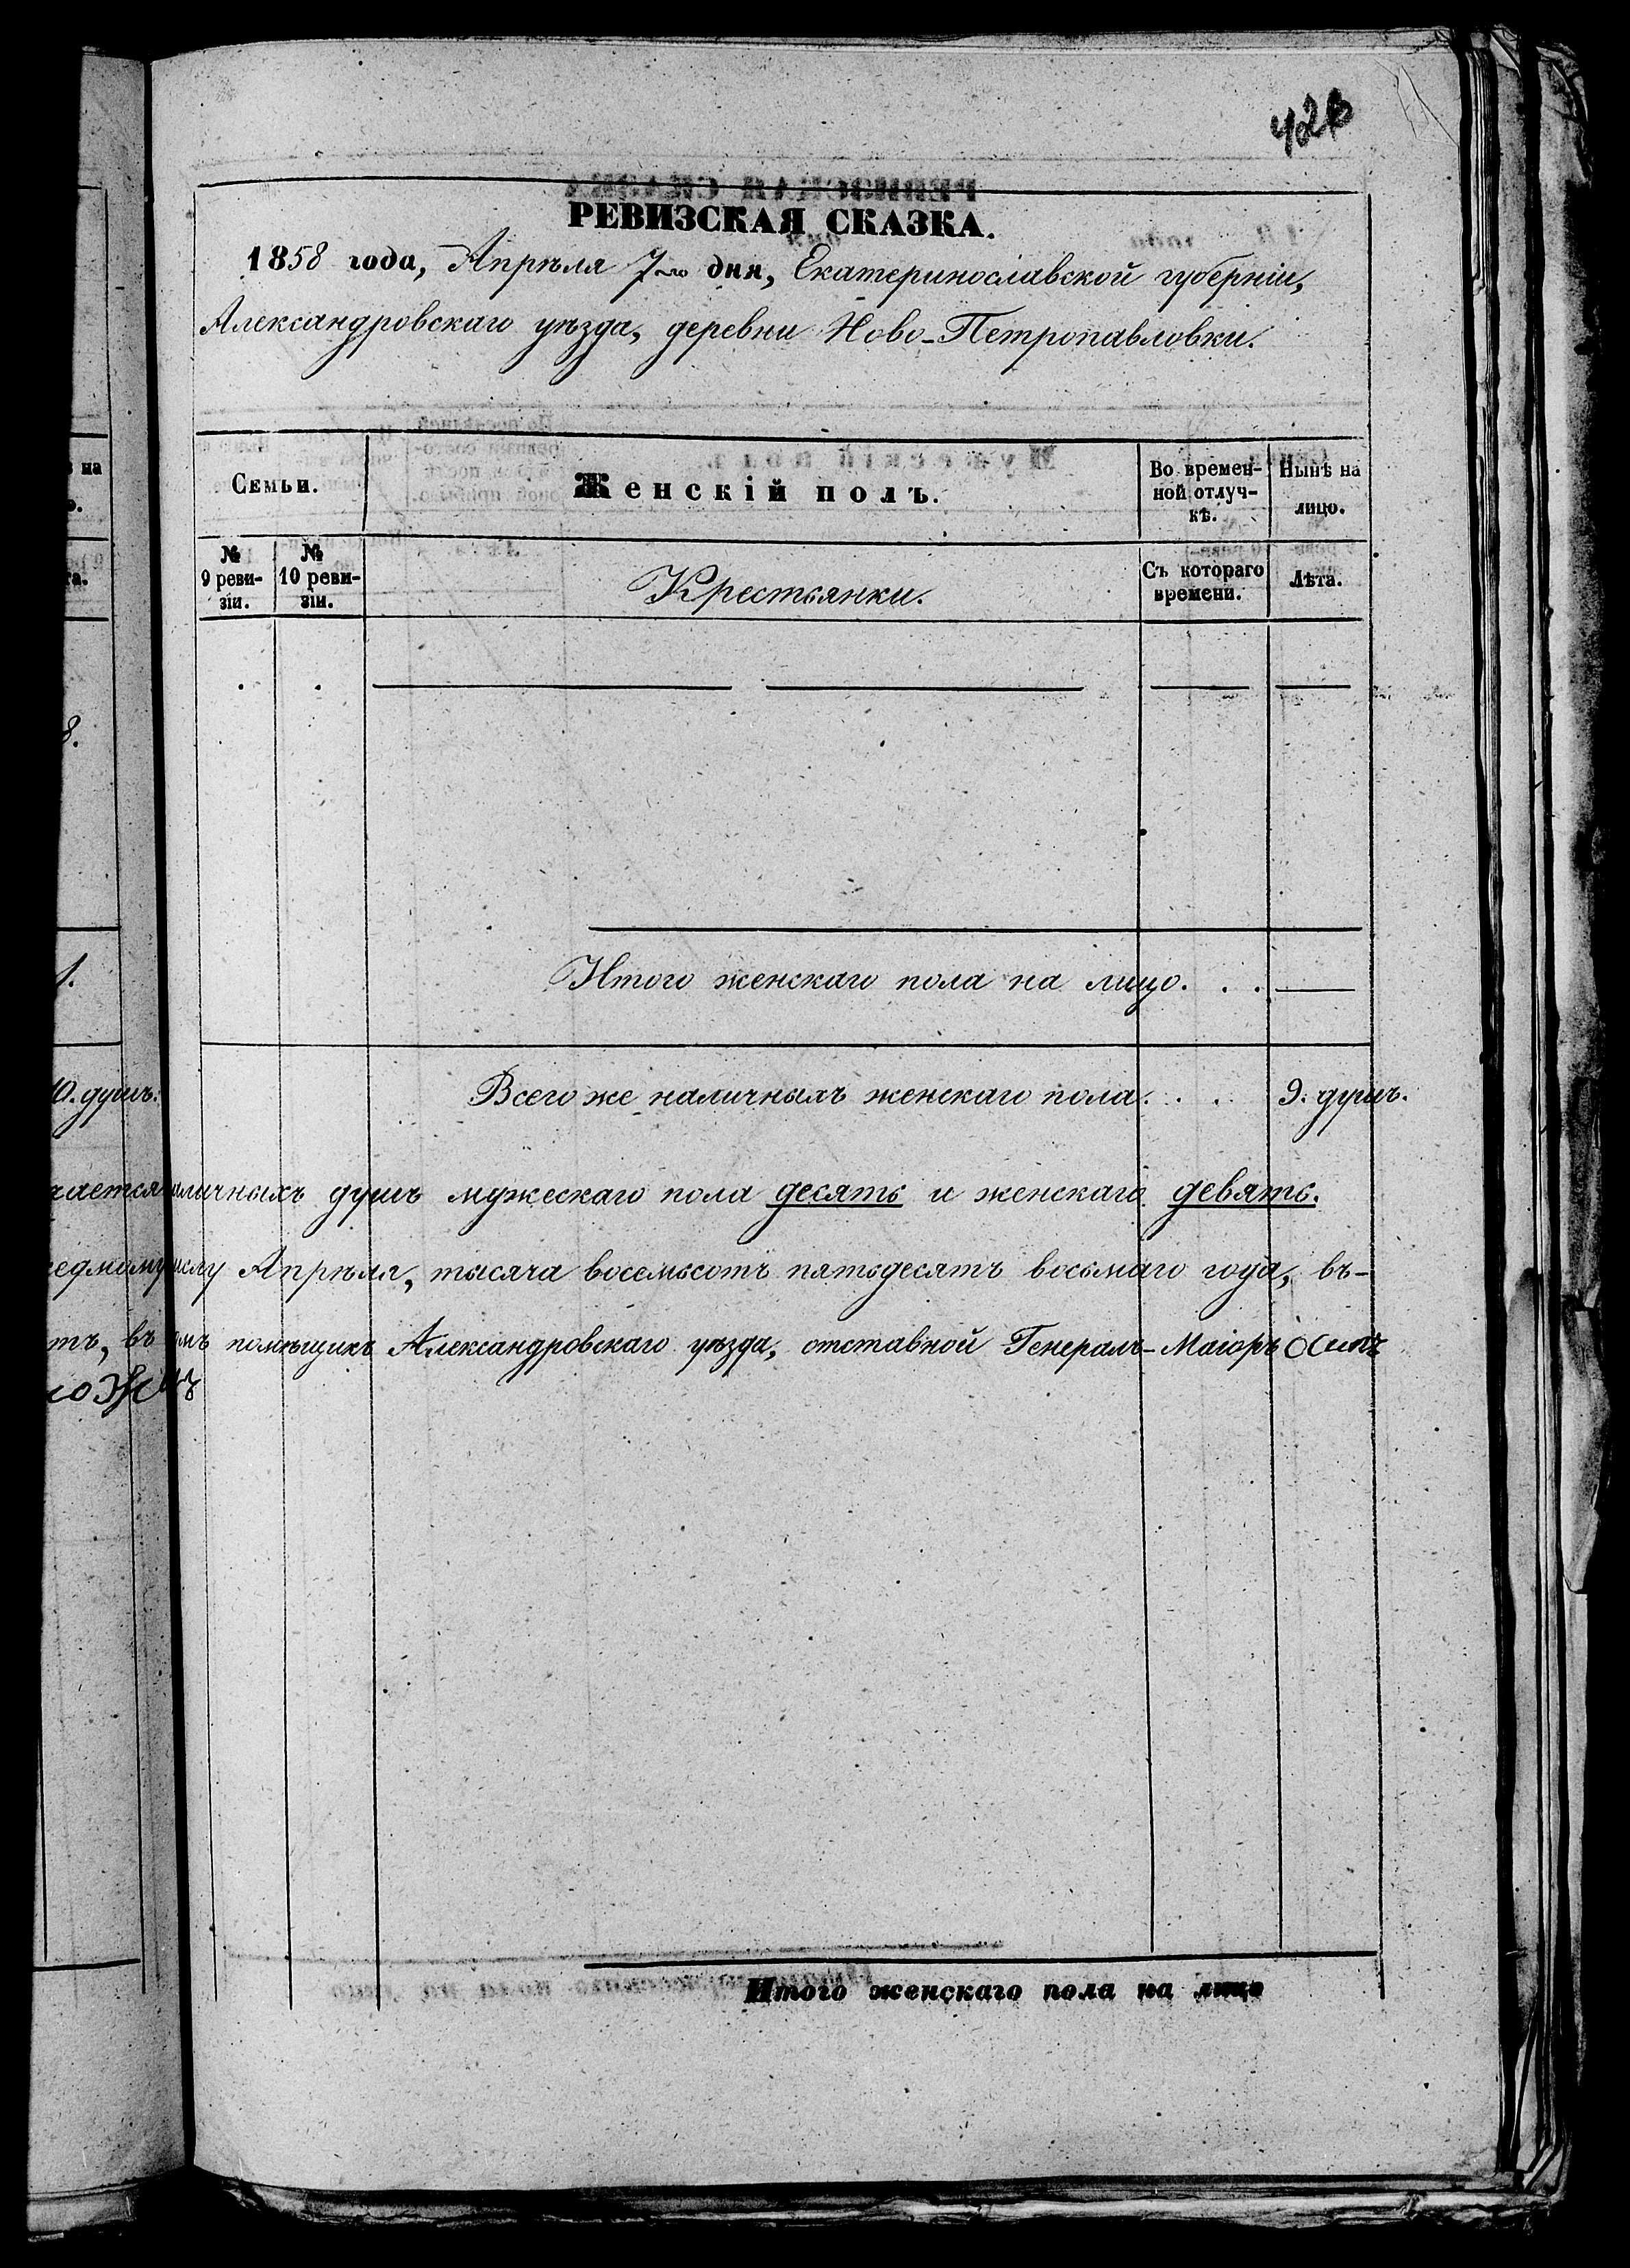 РЕВИЗСКАЯ СКАЗКА.
1858 года, Апрѣля 7го дня, Екатеринославской губерніи,
Александровскаго уѣзда, деревни Ново-Петропавловки.
на
Семьи.
Женскій полъ.
Во времен-
ной отлуч-
кѣ.
Нынѣ на
лицо.
№
9 реви-
зіи.
№
10 реви-
зіи.
Крестьянки.
Съ котораго
времени.
Лѣта.
8.
Итого женскаго пола на лицо. . .
1.
10. душъ.
Всего же наличныхъ женскаго пола. . . 9. душъ.
аличныхъ душъ мужескаго пола десять и женскаго девять.
Апрѣля, тысяча восемьсотъ пятьдесятъ восьмаго года, въ-
тъ, въ помѣщикъ Александровскаго уѣзда, отставной Генералъ-Маіоръ Осипъ
Итого женскаго пола на лицо